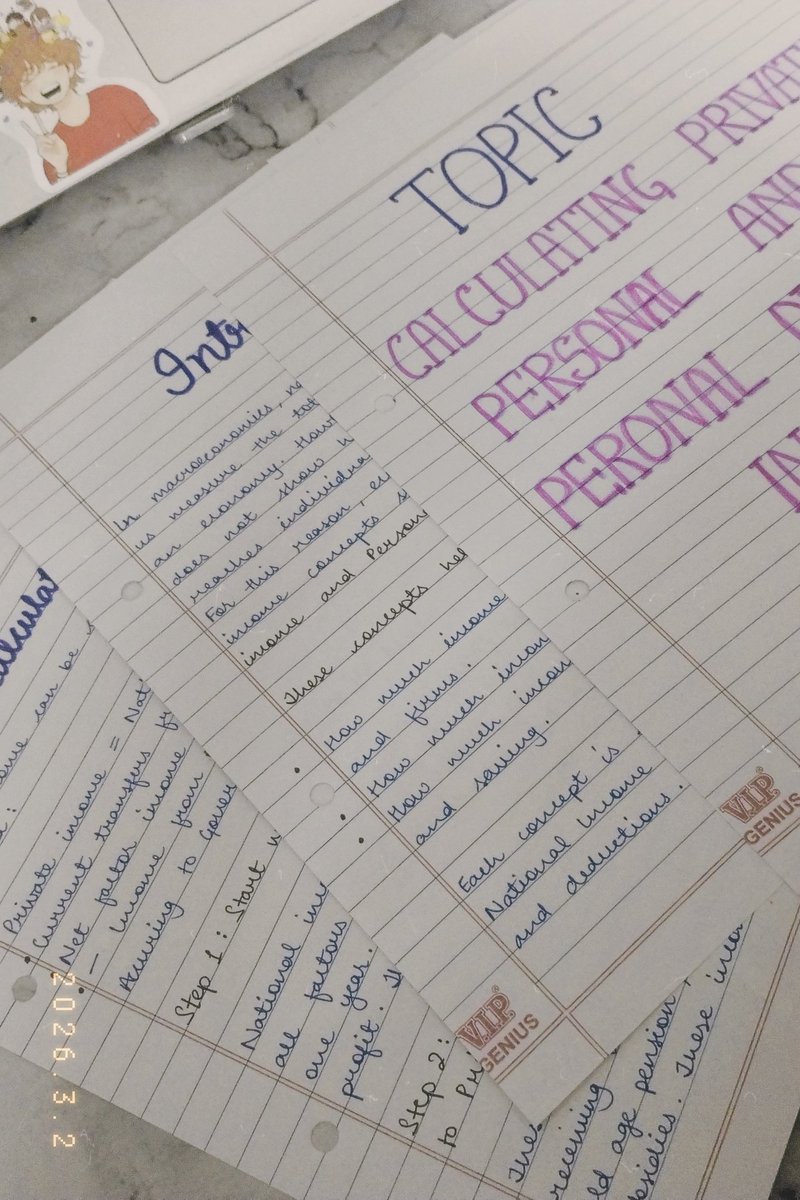 TOPIC
CALCULATING PRIVAT
PERSONAL AND
PERONAL
VIP
GENIUS
In macroeconomics,
us measure the
an economy.
does not show
reaches
For this reason,
income concepts
income and
These concepts
How much income
and firms.
How much
How much
and saving.
Each concept is
National income
and deductions.
VIP
GENIUS
can be
Private income =
Current transfers
Net factor income
- Income from
Accuring to
Step 1: Start
National
all factors
one year.
profit.
Step 2:
to
receiving
age pension,
These
2026.3.2